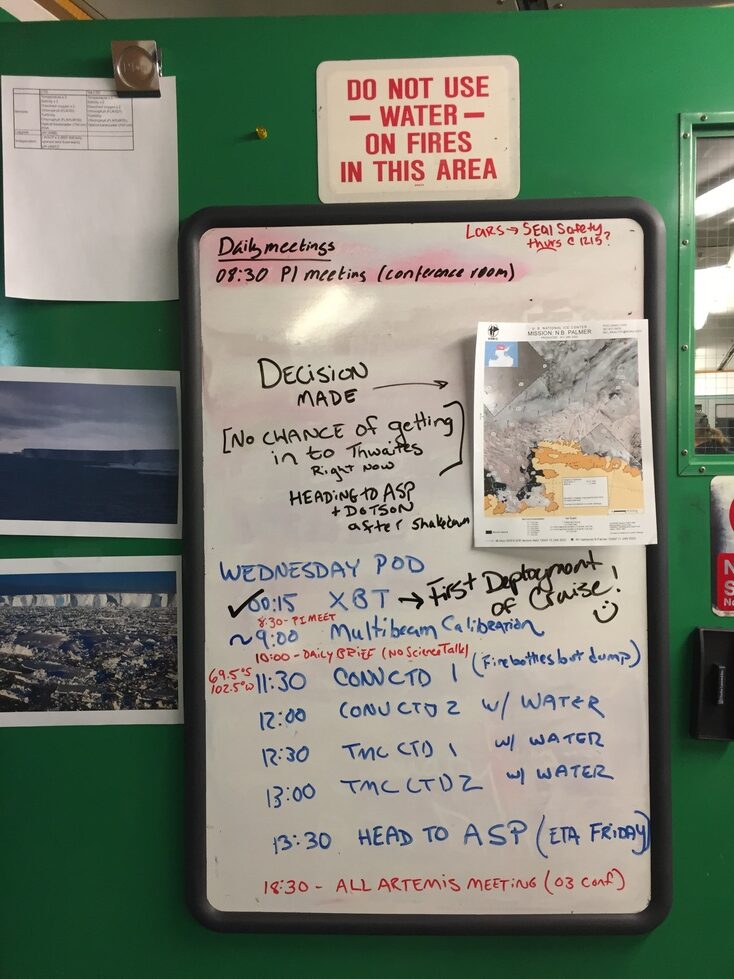 DO NOT USE
— WATER —
ON FIRES
IN THIS AREA
LARS → SEAl Safety
thurs @ 1215?
Daily meetings
08:30 PI meeting (conference room)
U.S. NATIONAL ICE CENTER
MISSION: N.B. PALMER
DECISION
MADE
[No CHANCE of getting
in to Thwaites
Right Now
HEADING TO ASP
+ DOTSON
after Shakedown
WEDNESDAY POD
✓ 00:15 XBT → First Deployment
of Cruise!
8:30 - PI MEET
~9:00 Multibeam Calibration
10:00 - DAILY BRIEF (No Science Talk)
69.5°S
102.5°W
11:30 CONV CTD 1 (Fire bottles but dump)
12:00 CONV CTD 2 w/ WATER
12:30 TMC CTD 1 w/ WATER
13:00 TMC CTD 2 w/ WATER
13:30 HEAD TO ASP (ETA FRIDAY)
18:30 - ALL ARTEMIS MEETING (03 Conf)